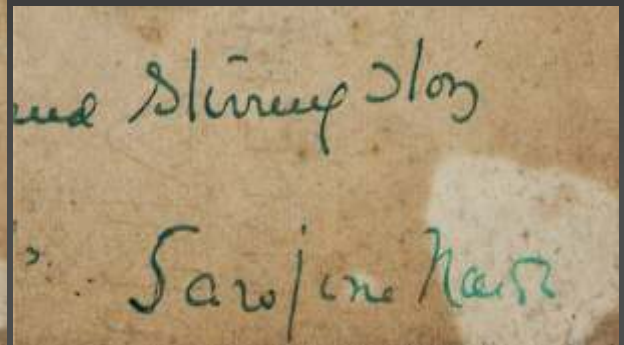 and Stirring Story
Sarojini Naidu